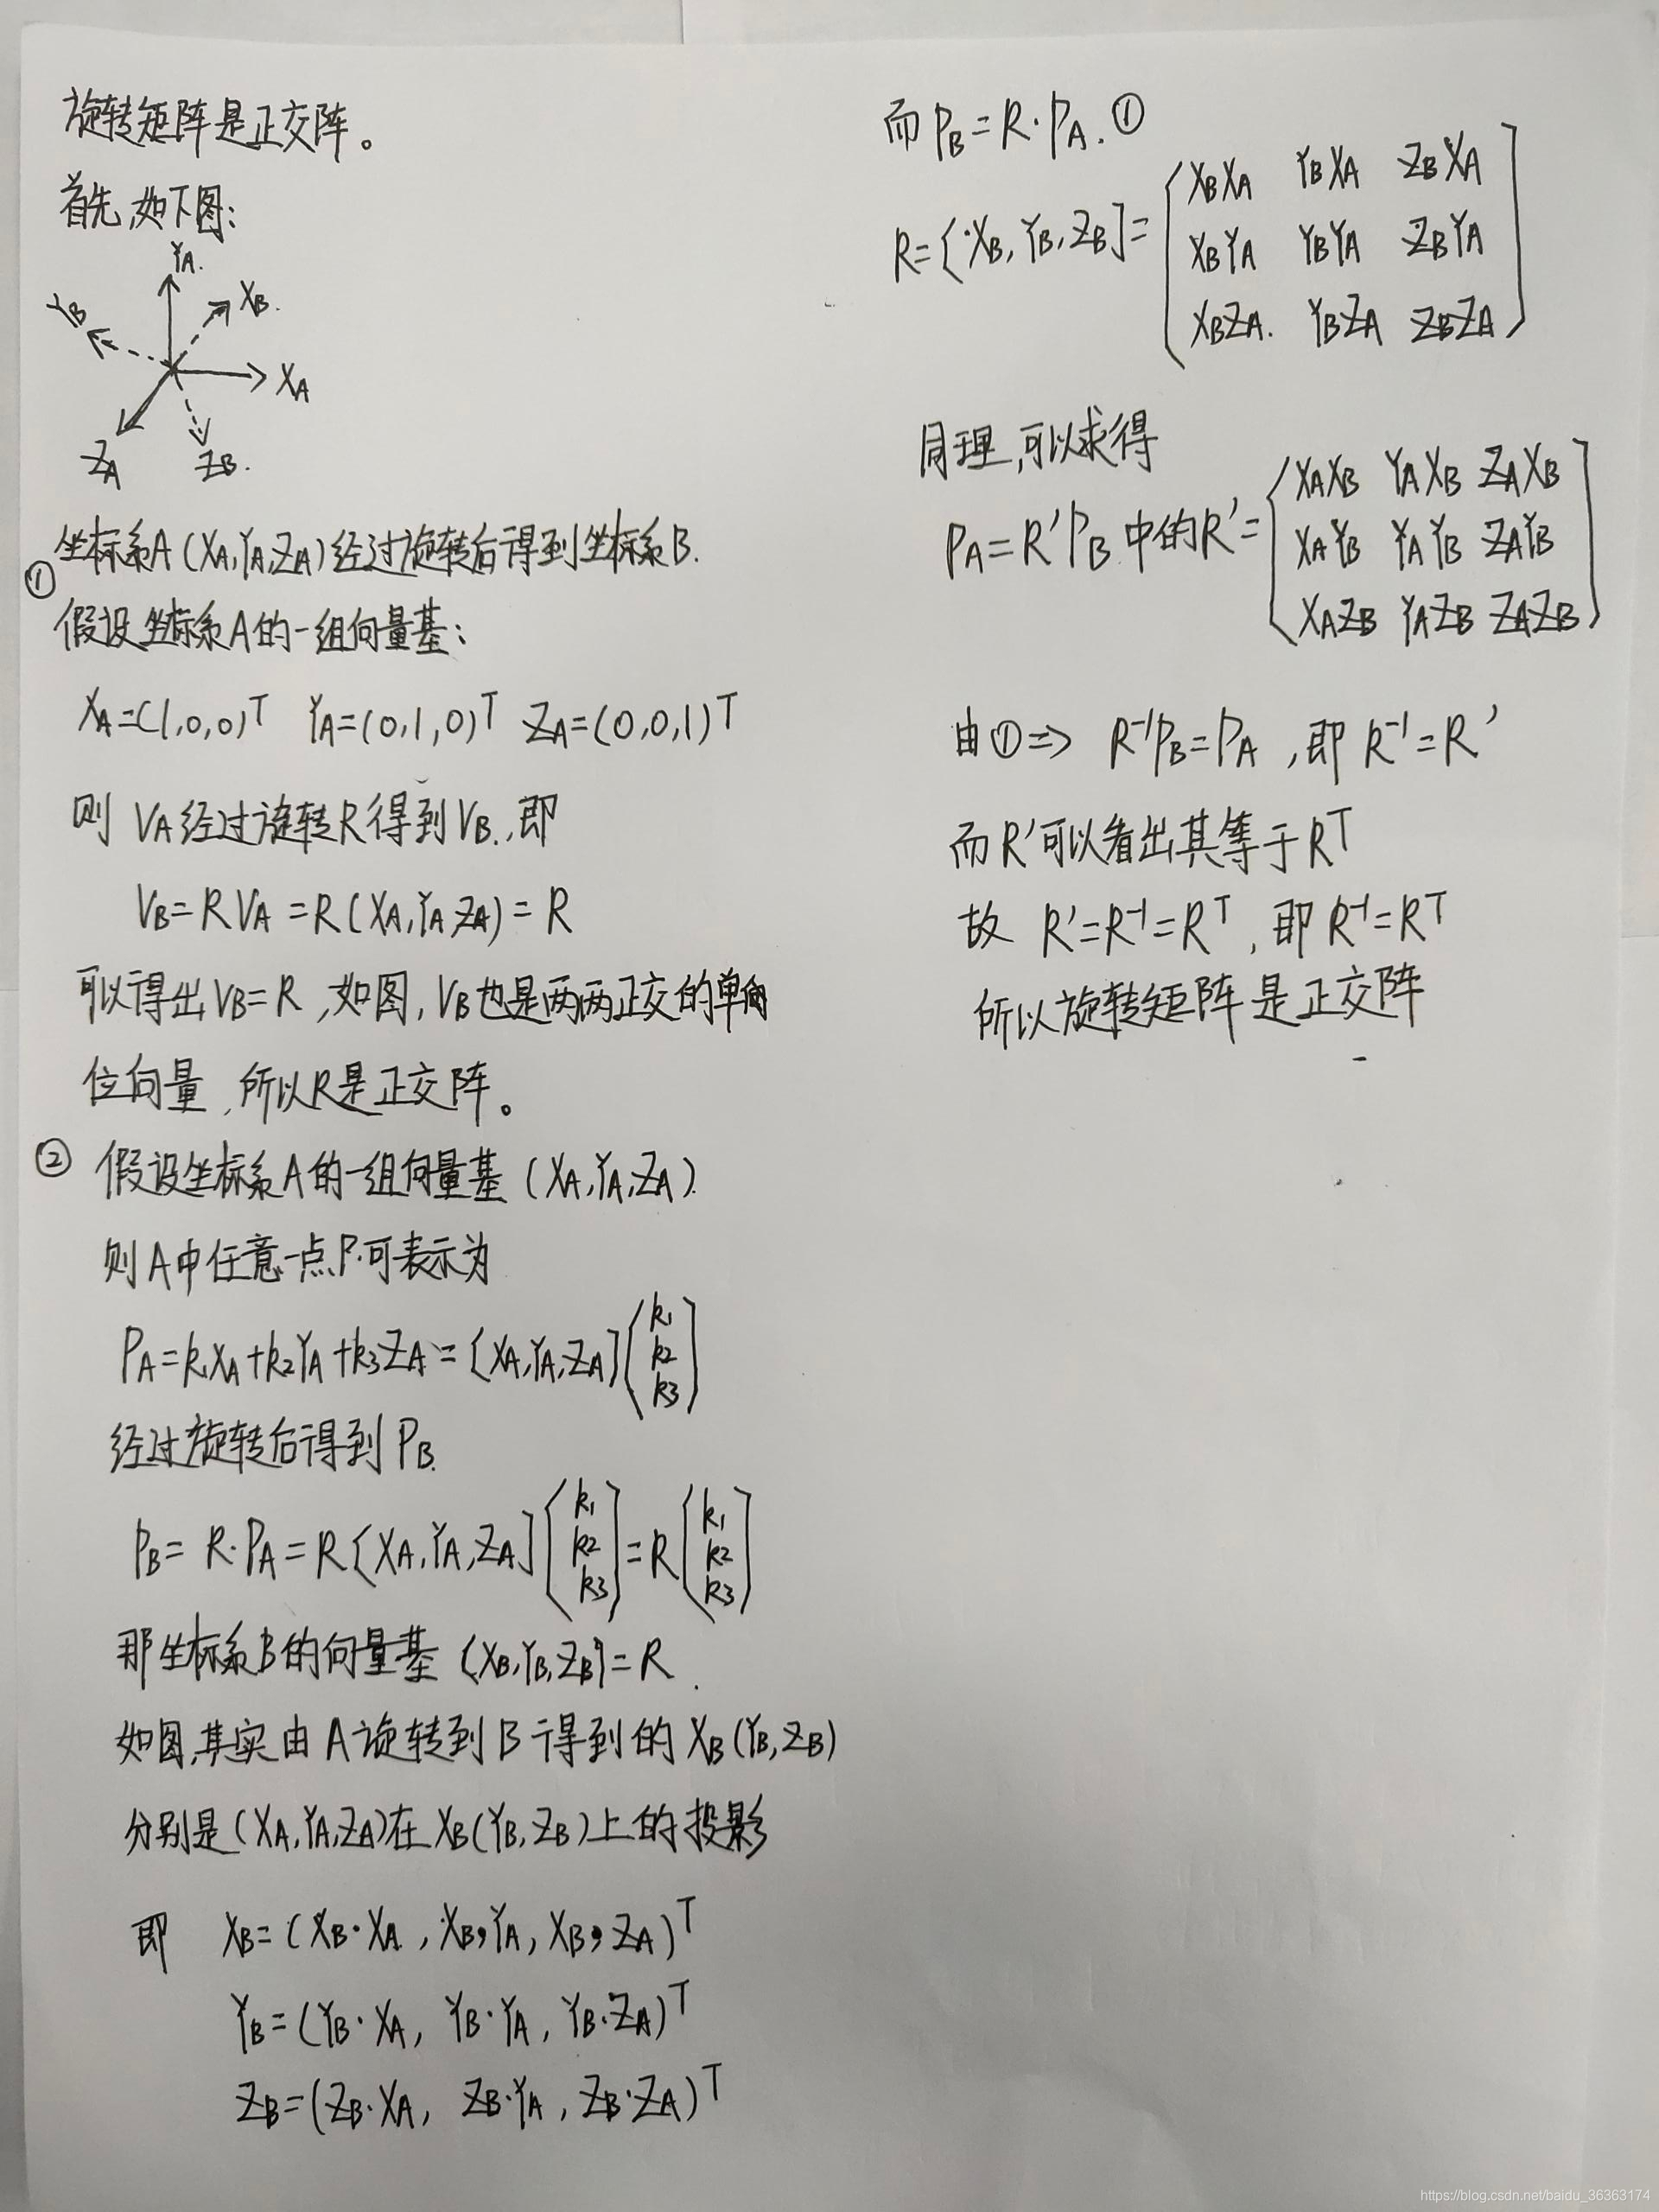 旋转矩阵是正交阵。
首先,如下图:
YA.
XB.
YB
XA
ZA
ZB.
坐标系A(XA,YA,ZA)经过旋转后得到坐标系B.
①
假设坐标系A的一组向量基:
XA=(1,0,0)ᵀ YA=(0,1,0)ᵀ ZA=(0,0,1)ᵀ
则 VA经过旋转R得到VB.,即
VB=RVA=R(XA,YA,ZA)=R
可以得出VB=R,如图,VB也是两两正交的单
位向量,所以R是正交阵。
② 假设坐标系A的一组向量基(XA,YA,ZA).
则A中任意一点P.可表示为
PA=k1XA+k2YA+k3ZA=[XA,YA,ZA][k1 k2 k3]
经过旋转后得到PB.
PB=R·PA=R[XA,YA,ZA][k1 k2 k3]=R[k1 k2 k3]
那坐标系B的向量基(XB,YB,ZB)=R.
如图,其实由A旋转到B得到的XB(YB,ZB)
分别是(XA,YA,ZA)在XB(YB,ZB)上的投影
即 XB=(XB·XA,XB·YA,XB·ZA)ᵀ
YB=(YB·XA,YB·YA,YB·ZA)ᵀ
ZB=(ZB·XA,ZB·YA,ZB·ZA)ᵀ
而PB=R·PA.①
R=[XB,YB,ZB]=
XBXA YBXA ZBXA
XBYA YBYA ZBYA
XBZA. YBZA ZBZA
同理,可以求得
PA=R'PB中的R'=
XAXB YAXB ZAXB
XAYB YAYB ZAYB
XAZB YAZB ZAZB
由①⇒ R⁻¹PB=PA,即R⁻¹=R'
而R'可以看出其等于Rᵀ
故 R'=R⁻¹=Rᵀ,即R⁻¹=Rᵀ
所以旋转矩阵是正交阵
https://blog.csdn.net/baidu_36363174